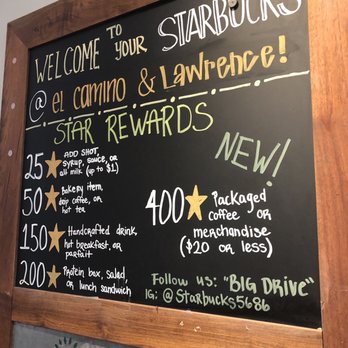 WELCOME TO YOUR STARBUCKS
@ el camino & Lawrence!
STAR REWARDS
NEW!
25 ADD SHOT,
syrup, sauce, or
alt milk (up to $1)
50 Bakery item,
drip coffee, or
hot tea
150 Handcrafted drink,
hot breakfast, or
parfait
200 Protein box, salad,
or lunch sandwich
400 Packaged
coffee or
merchandise
($20 or less)
Follow us: "BIG DRIVE"
IG: @Starbucks5686